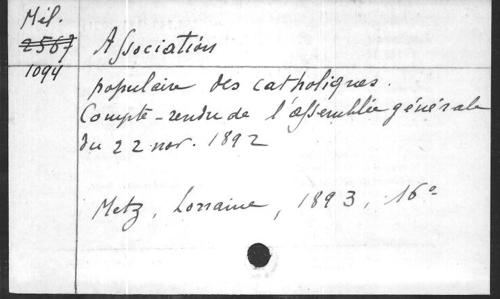 Mél.
2567
1094
Association
populaire des catholiques.
Compte-rendu de l'assemblée générale
du 22 nov. 1892
Metz, Lorraine, 1893, 16°